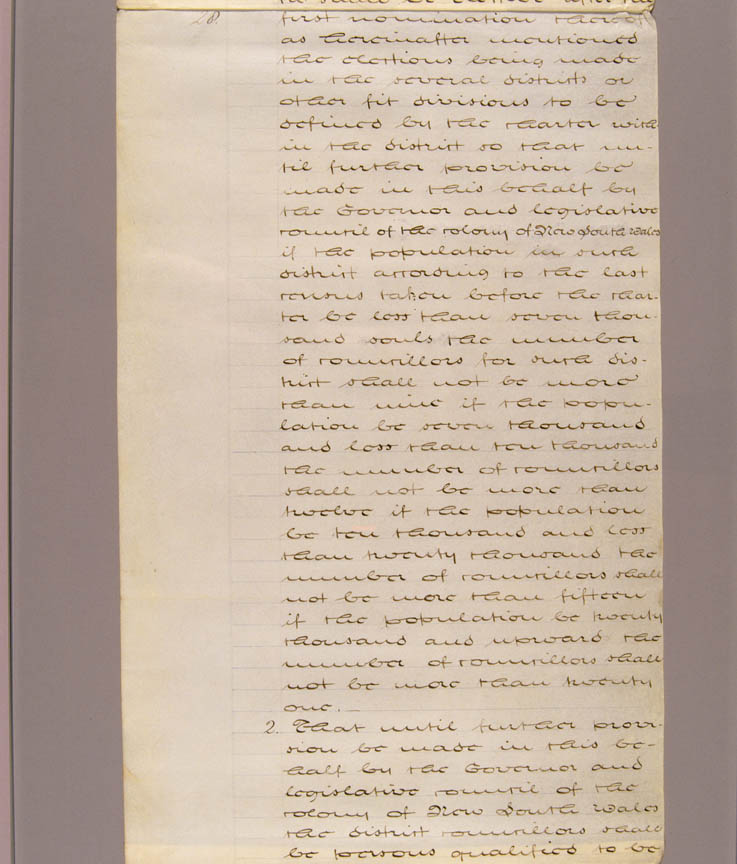 28.
first nomination thereof
as hereinafter mentioned
the elections being made
in the several districts or
other fit divisions to be
defined by the charter with
in the district so that un-
til further provision be
made in this behalf by
the Governor and legislative
council of the colony of New South Wales
if the population in such
district according to the last
census taken before the char-
ter be less than seven thou-
sand souls the number
of councillors for such dis-
trict shall not be more
than nine if the popu-
lation be seven thousand
and less than ten thousand
the number of councillors
shall not be more than
twelve if the population
be ten thousand and less
than twenty thousand the
number of councillors shall
not be more than fifteen
if the population be twenty
thousand and upward the
number of councillors shall
not be more than twenty
one. –
2. That until further provi-
sion be made in this be-
half by the Governor and
legislative council of the
colony of New South Wales
the district councillors shall
be persons qualified to be